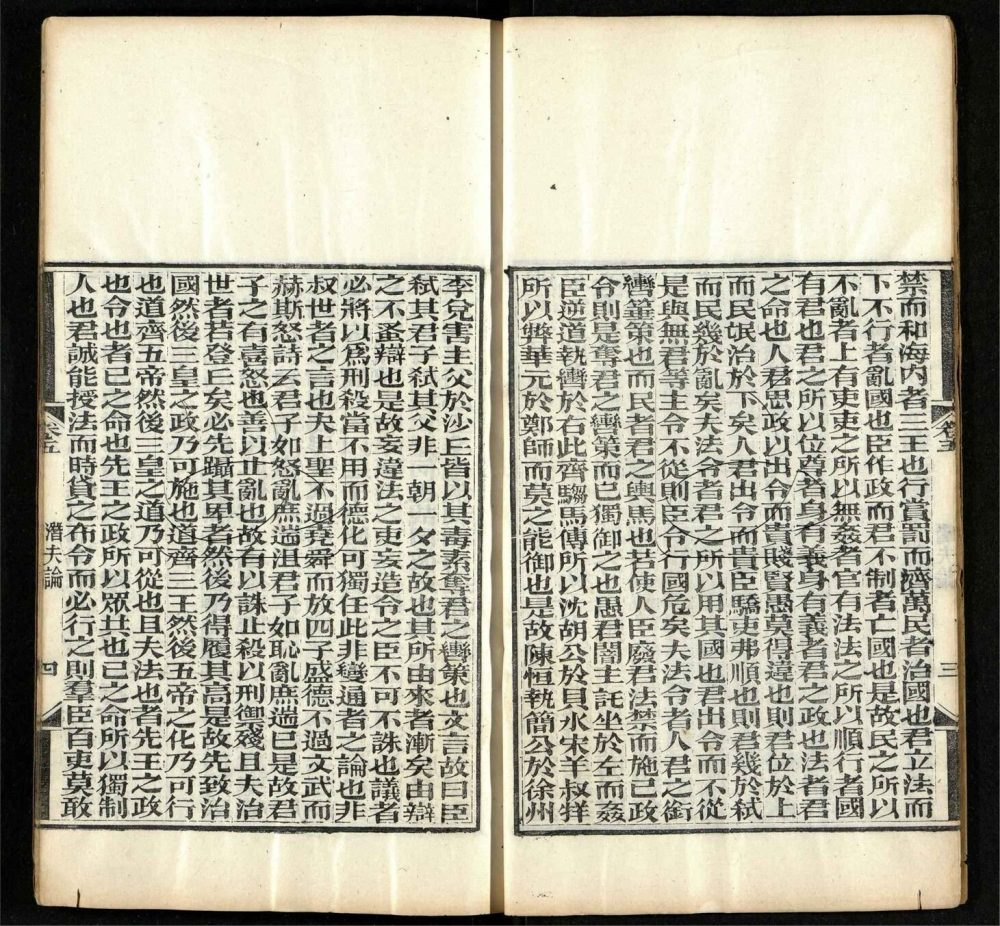 禁而和海内者三王也行賞罰而濟萬民者治國也君立法而
下不行者亂國也臣作政而君不制者亡國也是故民之所以
不亂者上有吏吏之所以無姦者官有法法之所以順行者國
有君也君之所以位尊者身有義身有義者君之政也法者君
之命也人君思政以出令而貴賤賢愚莫得違也則君位於上
而民氓治於下矣人君出令而貴臣驕吏弗順也則君幾於弒
而民幾於亂矣夫法令者君之所以用其國也君出令而不從
是與無君等主令不從則臣令行國危矣夫法令者人君之銜
轡箠策也而民者君之輿馬也若使人臣廢君法禁而施己政
令則是奪君之轡策而己獨御之也愚君闇主託坐於左而姦
臣逆道執轡於右此齊騶馬傳所以沈胡公於貝水宋羊叔牂
所以弊華元於鄭師而莫之能御也是故陳恒執簡公於徐州
卷五
三
李兌害主父於沙丘皆以其毒素奪君之轡策也文言故曰臣
弒其君子弒其父非一朝一夕之故也其所由來者漸矣由辯
之不蚤辯也是故妄違法之吏妄造令之臣不可不誅也議者
必將以爲刑殺當不用而德化可獨任此非變通者之論也非
叔世者之言也夫上聖不過堯舜而放四子盛德不過文武而
赫斯怒詩云君子如怒亂庶遄沮君子如恥亂庶遄已是故君
子之有喜怒也善以止亂也故有以誅止殺以刑御殘且夫治
世者若登丘矣必先躡其卑者然後乃得履其高是故先致治
國然後三皇之政乃可施也道齊三王然後五帝之化乃可行
也道齊五帝然後三皇之道乃可從也且夫法也者先王之政
也令也者己之命也先王之政所以眾共也己之命所以獨制
人也君誠能授法而時貸之布令而必行之則羣臣百吏莫敢
卷五
潛夫論
四